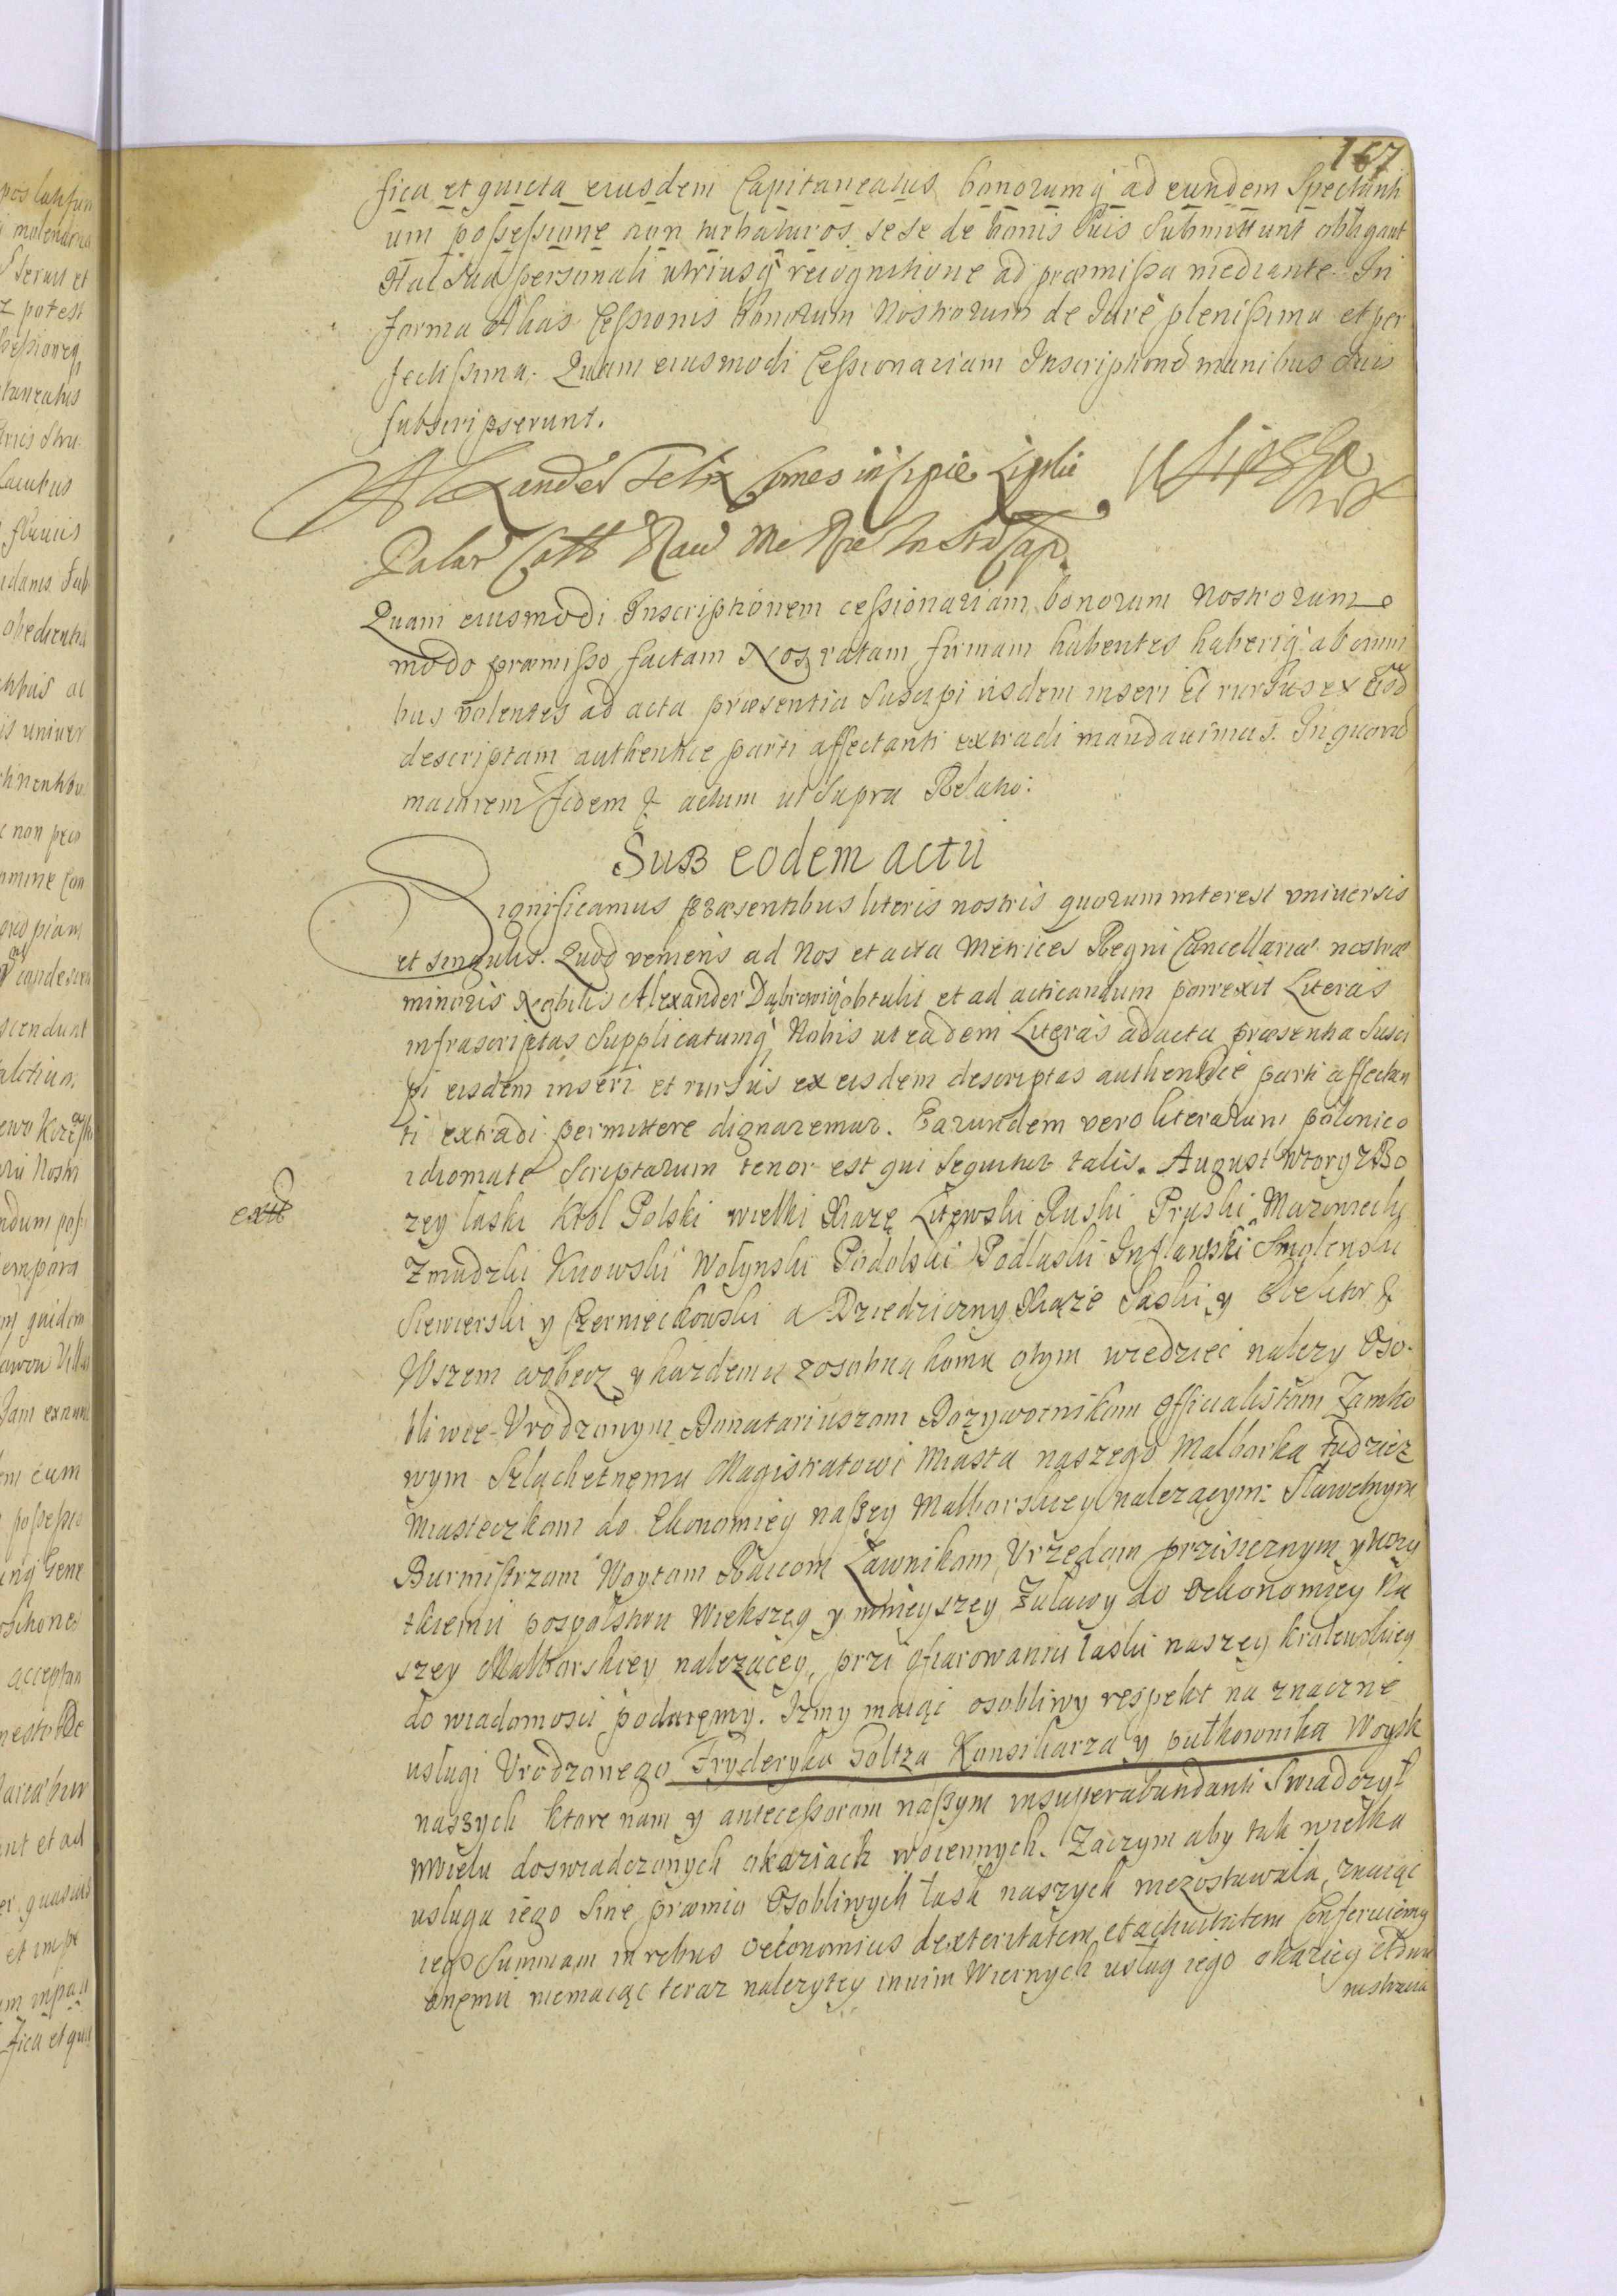 167
fica et quieta eiusdem Capitaneatus bonorumq ad eundem Spectanti
um possessione non turbaturos sese de bonis Suis Submittunt obligant
Hac Sua personali utriusq recognitione ad præmissa mediante. In
forma Alias Cessionis bonorum Nostrorum de Jure plenissima et per
fectissima. Quam eiusmodi Cessionariam Inscriptione manibus Suis
subscripserunt.
Alexander Felix Comes in Lipie Lipski
Quam eiusmodi Inscriptionem cessionariam bonorum Nostrorum
modo præmisso factam Nos ratam firmam habentes haberiq ab omni
bus volentes ad acta præsentia Suscipi iisdem inseri Et rursus ex eisd
descriptam authentice parti affectanti extradi mandavimus. In quorum
maiorem fidem & actum ut Supra Relatio:
Sub eodem actu
Significamus præsentibus literis nostris quorum interest universis
et singulis. Quod veniens ad Nos et acta Metrices Regni Cancellariæ nostræ
minoris Nobilis Alexander Dąbrowię obtulit et ad acticandum porrexit Literas
infrascriptas Supplicatumq Nobis ut eadem Literas ad acta præsentia Susci
pi eisdem inseri et rursus ex eisdem descriptas authentice parti affectan
ti extradi permittere dignaremur. Earundem vero literarum polonico
idiomate Scriptarum tenor est qui Sequitur talis. August Wtory z Bo
extt
zey łaski Krol Polski wielki Xiąze Litewski Ruski Pruski Mazowiecky
Zmudzki Kiiowski Wołynski Podolski Podlaski Inflantski Smolenski
Siewierski y Czerniechowski a Dziedziczny Xiąze Saski y Elektor &
Wszem wobecz y kazdemu zosobna komu otym wiedziec nalezy Oso
bliwie Urodzonym Donatariuszom Dozywotnikom Officialistom Zamko
wym Szlachetnemu Magistratowi Miasta naszego Malborka tudziez
Miasteczkom do Ekonomiey naszey Malborskiey nalezącym: Sławetnym
Burmistrzom Woytom Raicom Ławnikom Urzędom przisieznym y wszy
tkiemu pospolstwu Wiekszey y mnieyszey Zuławy do Oekonomiey Na
szey Malborskiey nalezącey, przi ofiarowaniu łaski naszey krolewskiey
do wiadomosci podaięmy. Izmy maiąc osobliwy respekt na znaczne
usługi Urodzonego Fryderyka Goltza Konsiliarza y pułkownika Woysk
naszych ktore nam y antecessorom naszym insuperabundanti Swiadczył
wwielu doswiadczonych okaziach woiennych. Zaczym aby tak wielka
usługa iego Sine præmio Osobliwych łask naszych niezostawała, znaiąc
iego Summam in rebus oeconomicis dexteritatem et activitatem Conferuiemy
onemu niemaiąc teraz nalezytey innim Wiernych usług iego okaziey
nistracia